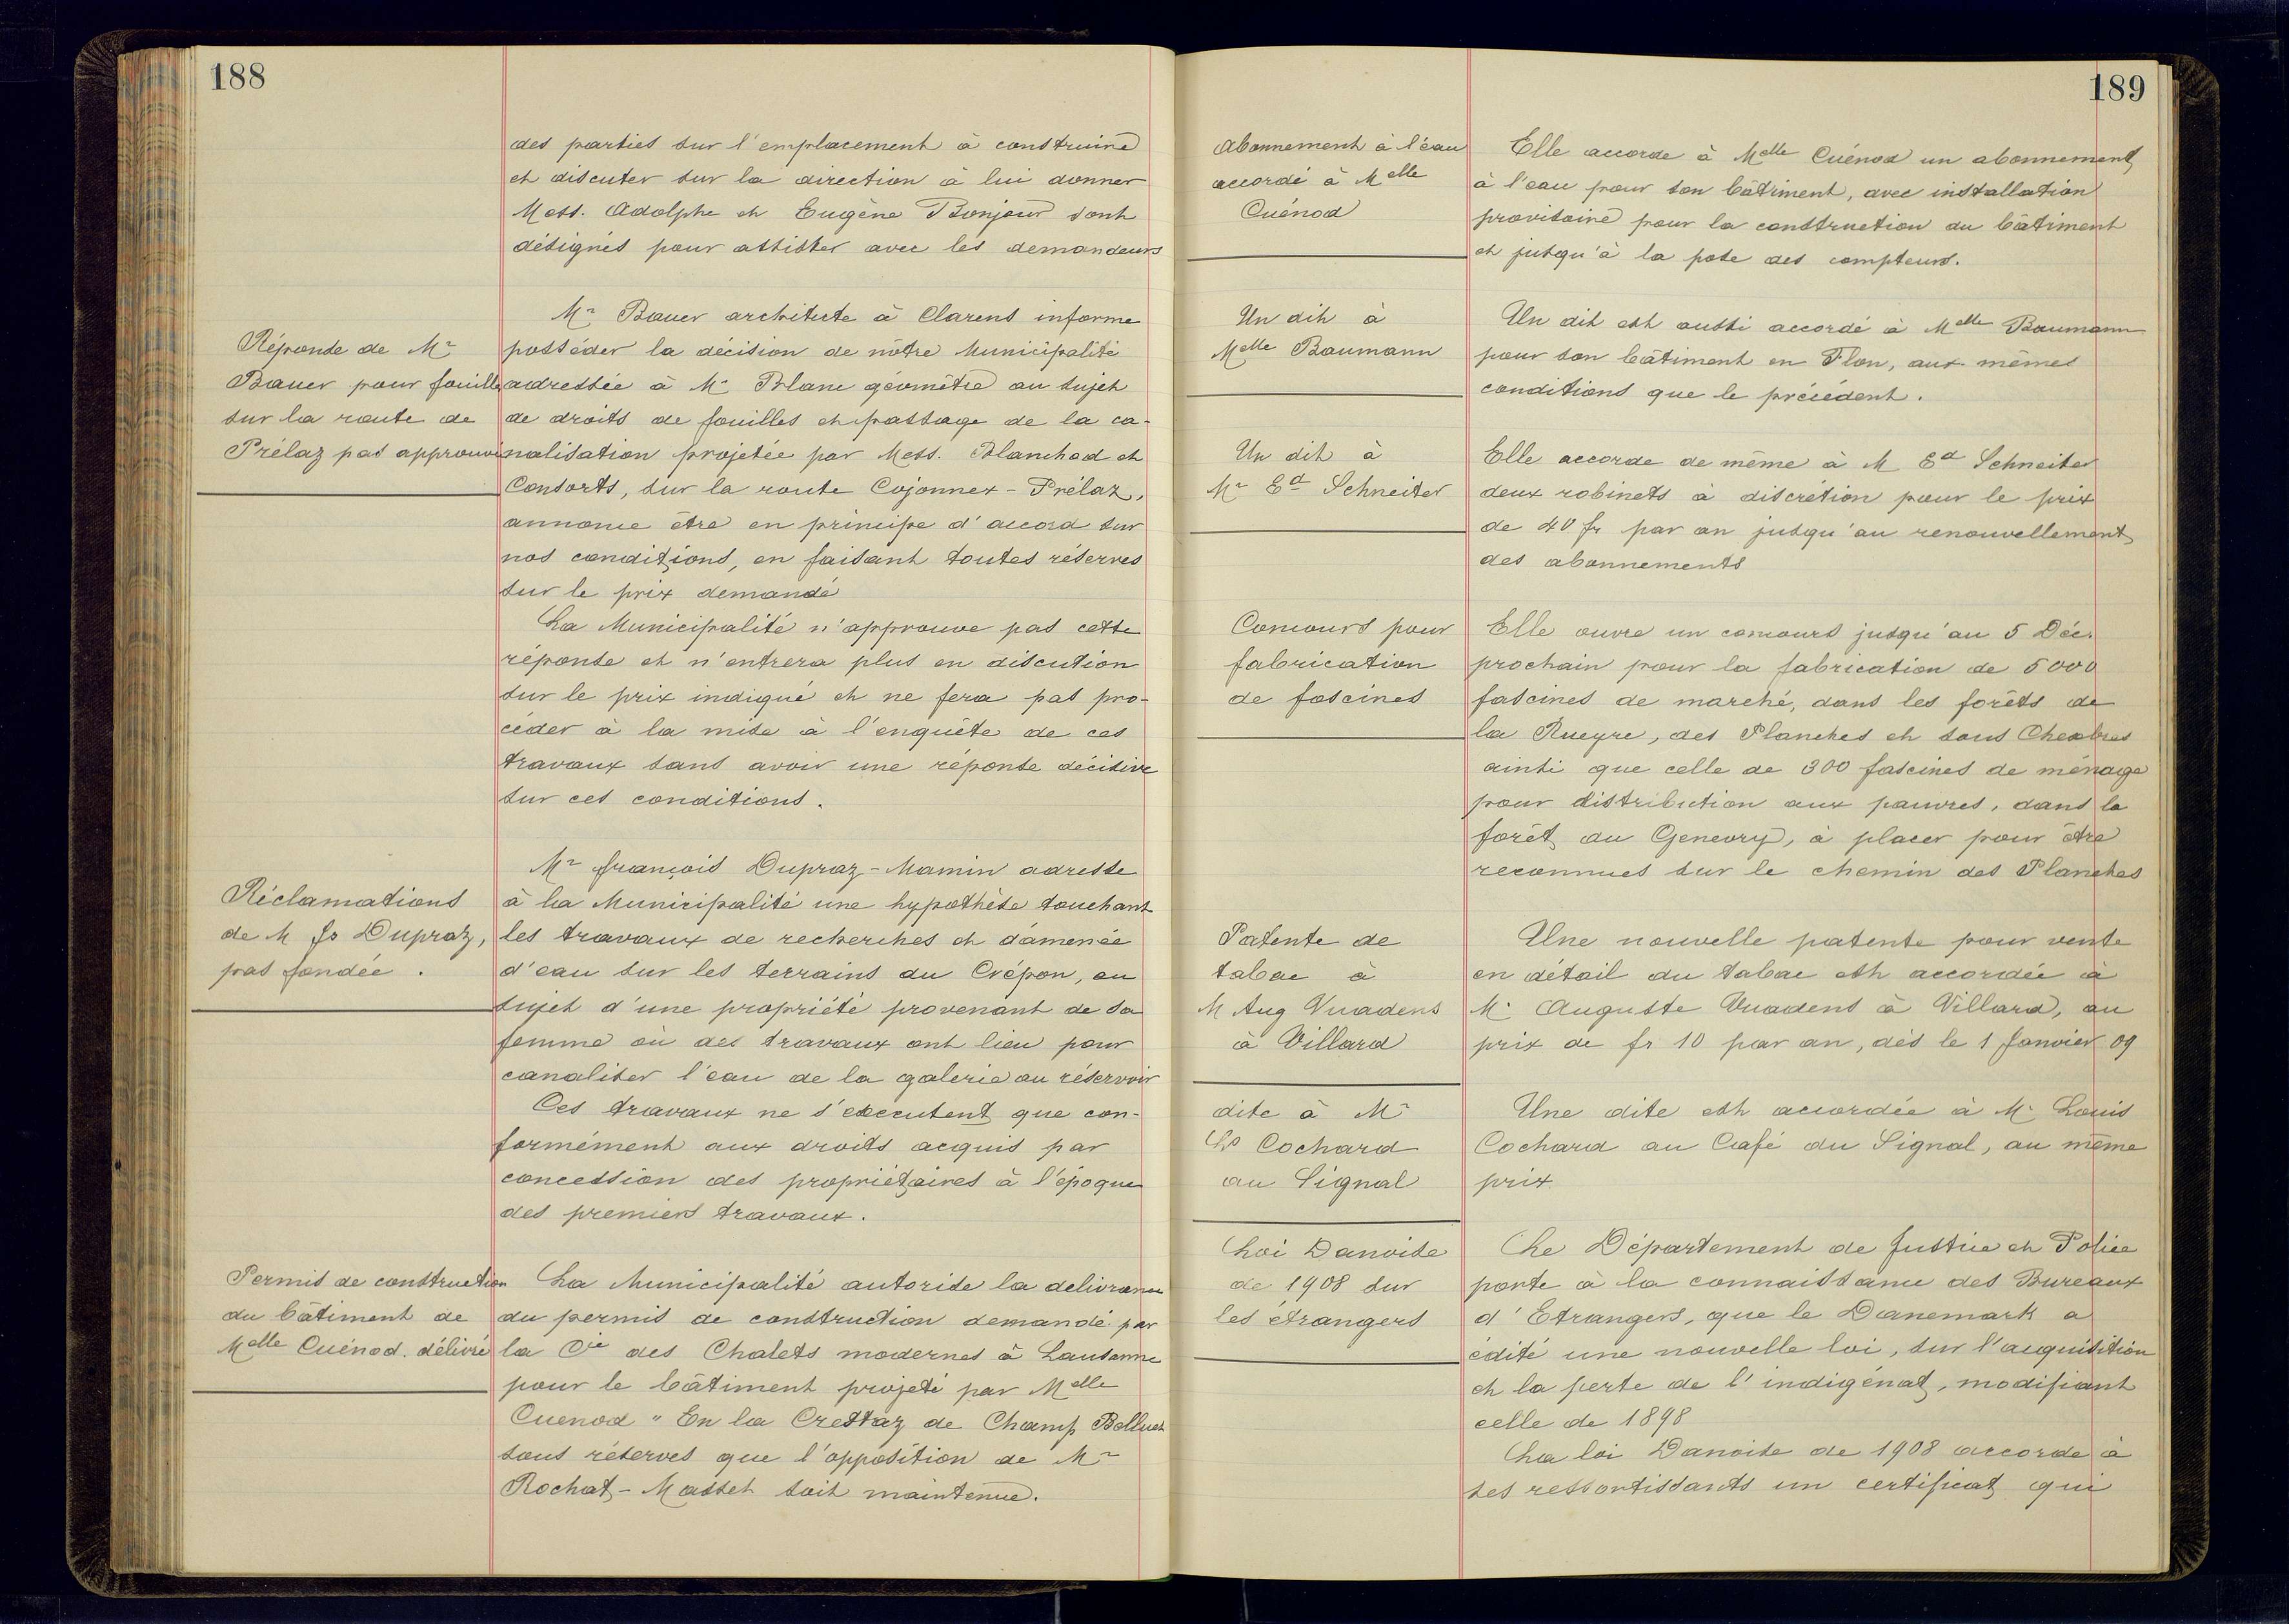 188
des parties sur l'emplacement à construire
et discuter sur la direction à lui donner
Mess. Adolphe et Eugène Bonjour sont
désignés pour assister avec les demandeurs
Réponse de Mr
Bauer pour fouille
sur la route de
Prélaz pas approuvé
Mr Bauer architecte à Clarens informe
posséder la décision de nôtre Municipalité
adressée à Mr Blanc géomètre au sujet
de droits de fouilles et passage de la ca-
nalisation projetée par Mess. Blanchod et
Consorts, sur la route Cojonnex - Prélaz,
annonce être en principe d'accord sur
nos conditions, en faisant toutes réserves
sur le prix demandé
La Municipalité n'approuve pas cette
réponse et n'entrera plus en discution
sur le prix indiqué et ne fera pas pro-
céder à la mise à l'enquête de ces
travaux sans avoir une réponse décisive
sur ces conditions.
Réclamations
de M fs Dupraz,
pas fondée.
Mr François Dupraz - Mamin adresse
à la Municipalité une hypothèse touchant
les travaux de recherches et d'amenée
d'eau sur les terrains du Crépon, au
sujet d'une propriété provenant de sa
femme où des travaux ont lieu pour
canaliser l'eau de la galerie au réservoir
Ces travaux ne s'executent que con-
formément aux droits acquis par
concession des propriétaires à l'époque
des premiers travaux.
Permis de construction
du bâtiment de
Melle Cuénod. délivré
La Municipalité autorise la delivrance
du permis de construction demandé par
la Cie des Chalets modernes à Lausanne
pour le bâtiment projeté par Melle
Cuenod " En la Crettaz de Champ Belluet
sous réserves que l'opposition de Mr
Rochat - Masset soit maintenue.
189
Abonnement à l'eau
accordé à Melle
Cuénod
Elle accorde à Melle Cuénod un abonnement
à l'eau pour son bâtiment, avec installation
provisoire pour la construction du bâtiment
et jusqu'à la pose des compteurs.
Un dit à
Melle Baumann
Un dit est aussi accordé à Melle Baumann
pour son bâtiment en Flon, aux mêmes
conditions que le précédent.
Un dit à
Mr Ed Schneiter
Elle accorde de même à M Ed Schneiter
deux robinets à discrétion pour le prix
de 40 fr par an jusqu'au renouvellement
des abonnements
Concours pour
fabrication
de fascines
Elle ouvre un concours jusqu'au 5 Déc.
prochain pour la fabrication de 5000
fascines de marché, dans les forêts de
la Rueyre, des Planches et sous Chexbres
ainsi que celle de 300 fascines de ménage
pour distribution aux pauvres, dans la
forêt du Genevry, à placer pour être
reconnues sur le chemin des Planches
Patente de
tabac à
M Aug Vuadens
à Villard
Une nouvelle patente pour vente
en détail du tabac est accordée à
M. Auguste Vuadens à Villard, au
prix de fr 10 par an, dès le 1 Janvier 09
dite à Mr
Ls Cochard
au Signal
Une dite est accordée à M. Louis
Cochard au Café du Signal, au même
prix
Loi Danoise
de 1908 sur
les étrangers
Le Département de Justice et Police
porte à la connaissance des Bureaux
d'Etrangers, que le Danemark a
édité une nouvelle loi, sur l'acquisition
et la perte de l'indigénat, modifiant
celle de 1898
La loi Danoise de 1908 accorde à
ses ressortissants un certificat qui